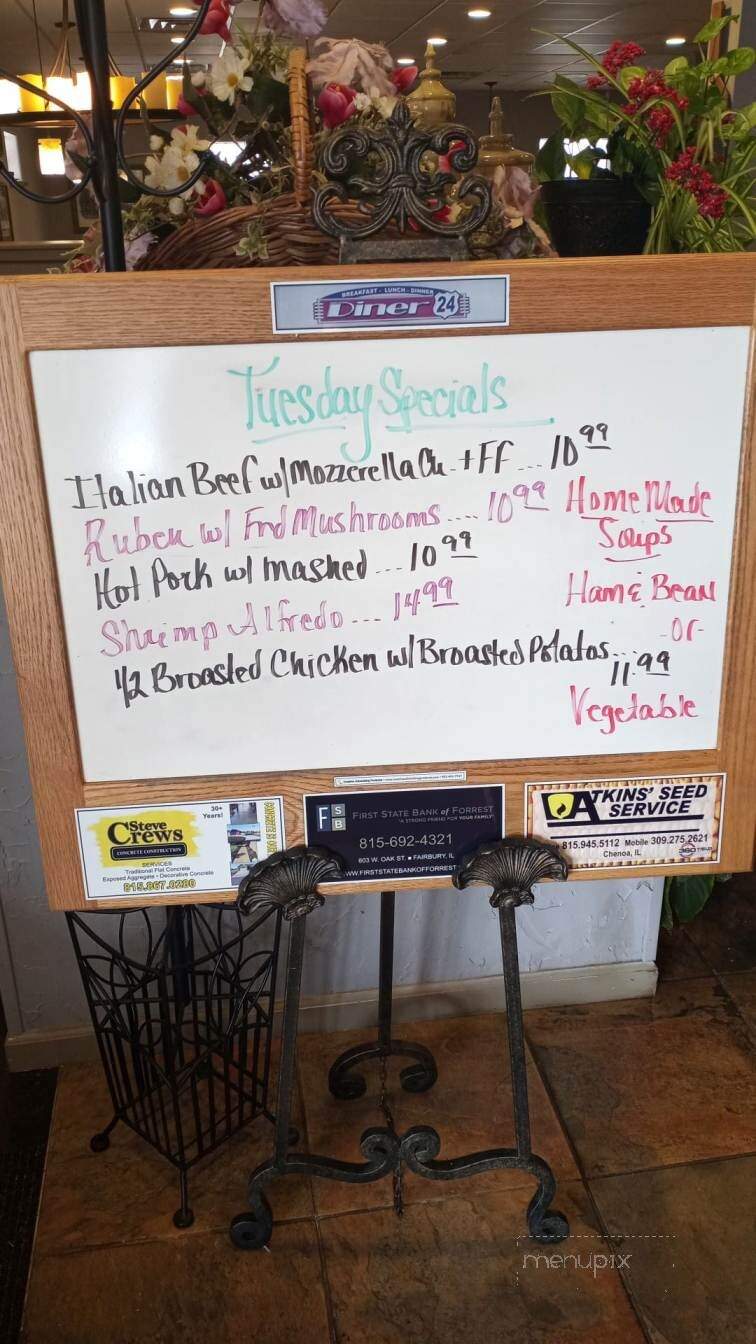 BREAKFAST - LUNCH - DINNER
Diner 24
Tuesday Specials
Italian Beef w/Mozzerella Ch. + FF ... 10 99
Ruben w/ Frd Mushrooms .... 10 99
Hot Pork w/ mashed ... 10 99
Shrimp Alfredo ... 14 99
1/2 Broasted Chicken w/ Broasted Potatos ... 11.99
Home Made
Soups
Ham & Bean
-or-
Vegetable
30+
Years!
Steve
Crews
CONCRETE CONSTRUCTION
SERVICES
Traditional Flat Concrete
Exposed Aggregate • Decorative Concrete
815.867.0280
FSB
FIRST STATE BANK of FORREST
"A STRONG FRIEND FOR YOUR FAMILY"
815-692-4321
603 W. OAK ST. • FAIRBURY, IL
WWW.FIRSTSTATEBANKOFFORREST
ATKINS' SEED
SERVICE
815.945.5112 Mobile 309.275.2621
Chenoa, IL
menupix